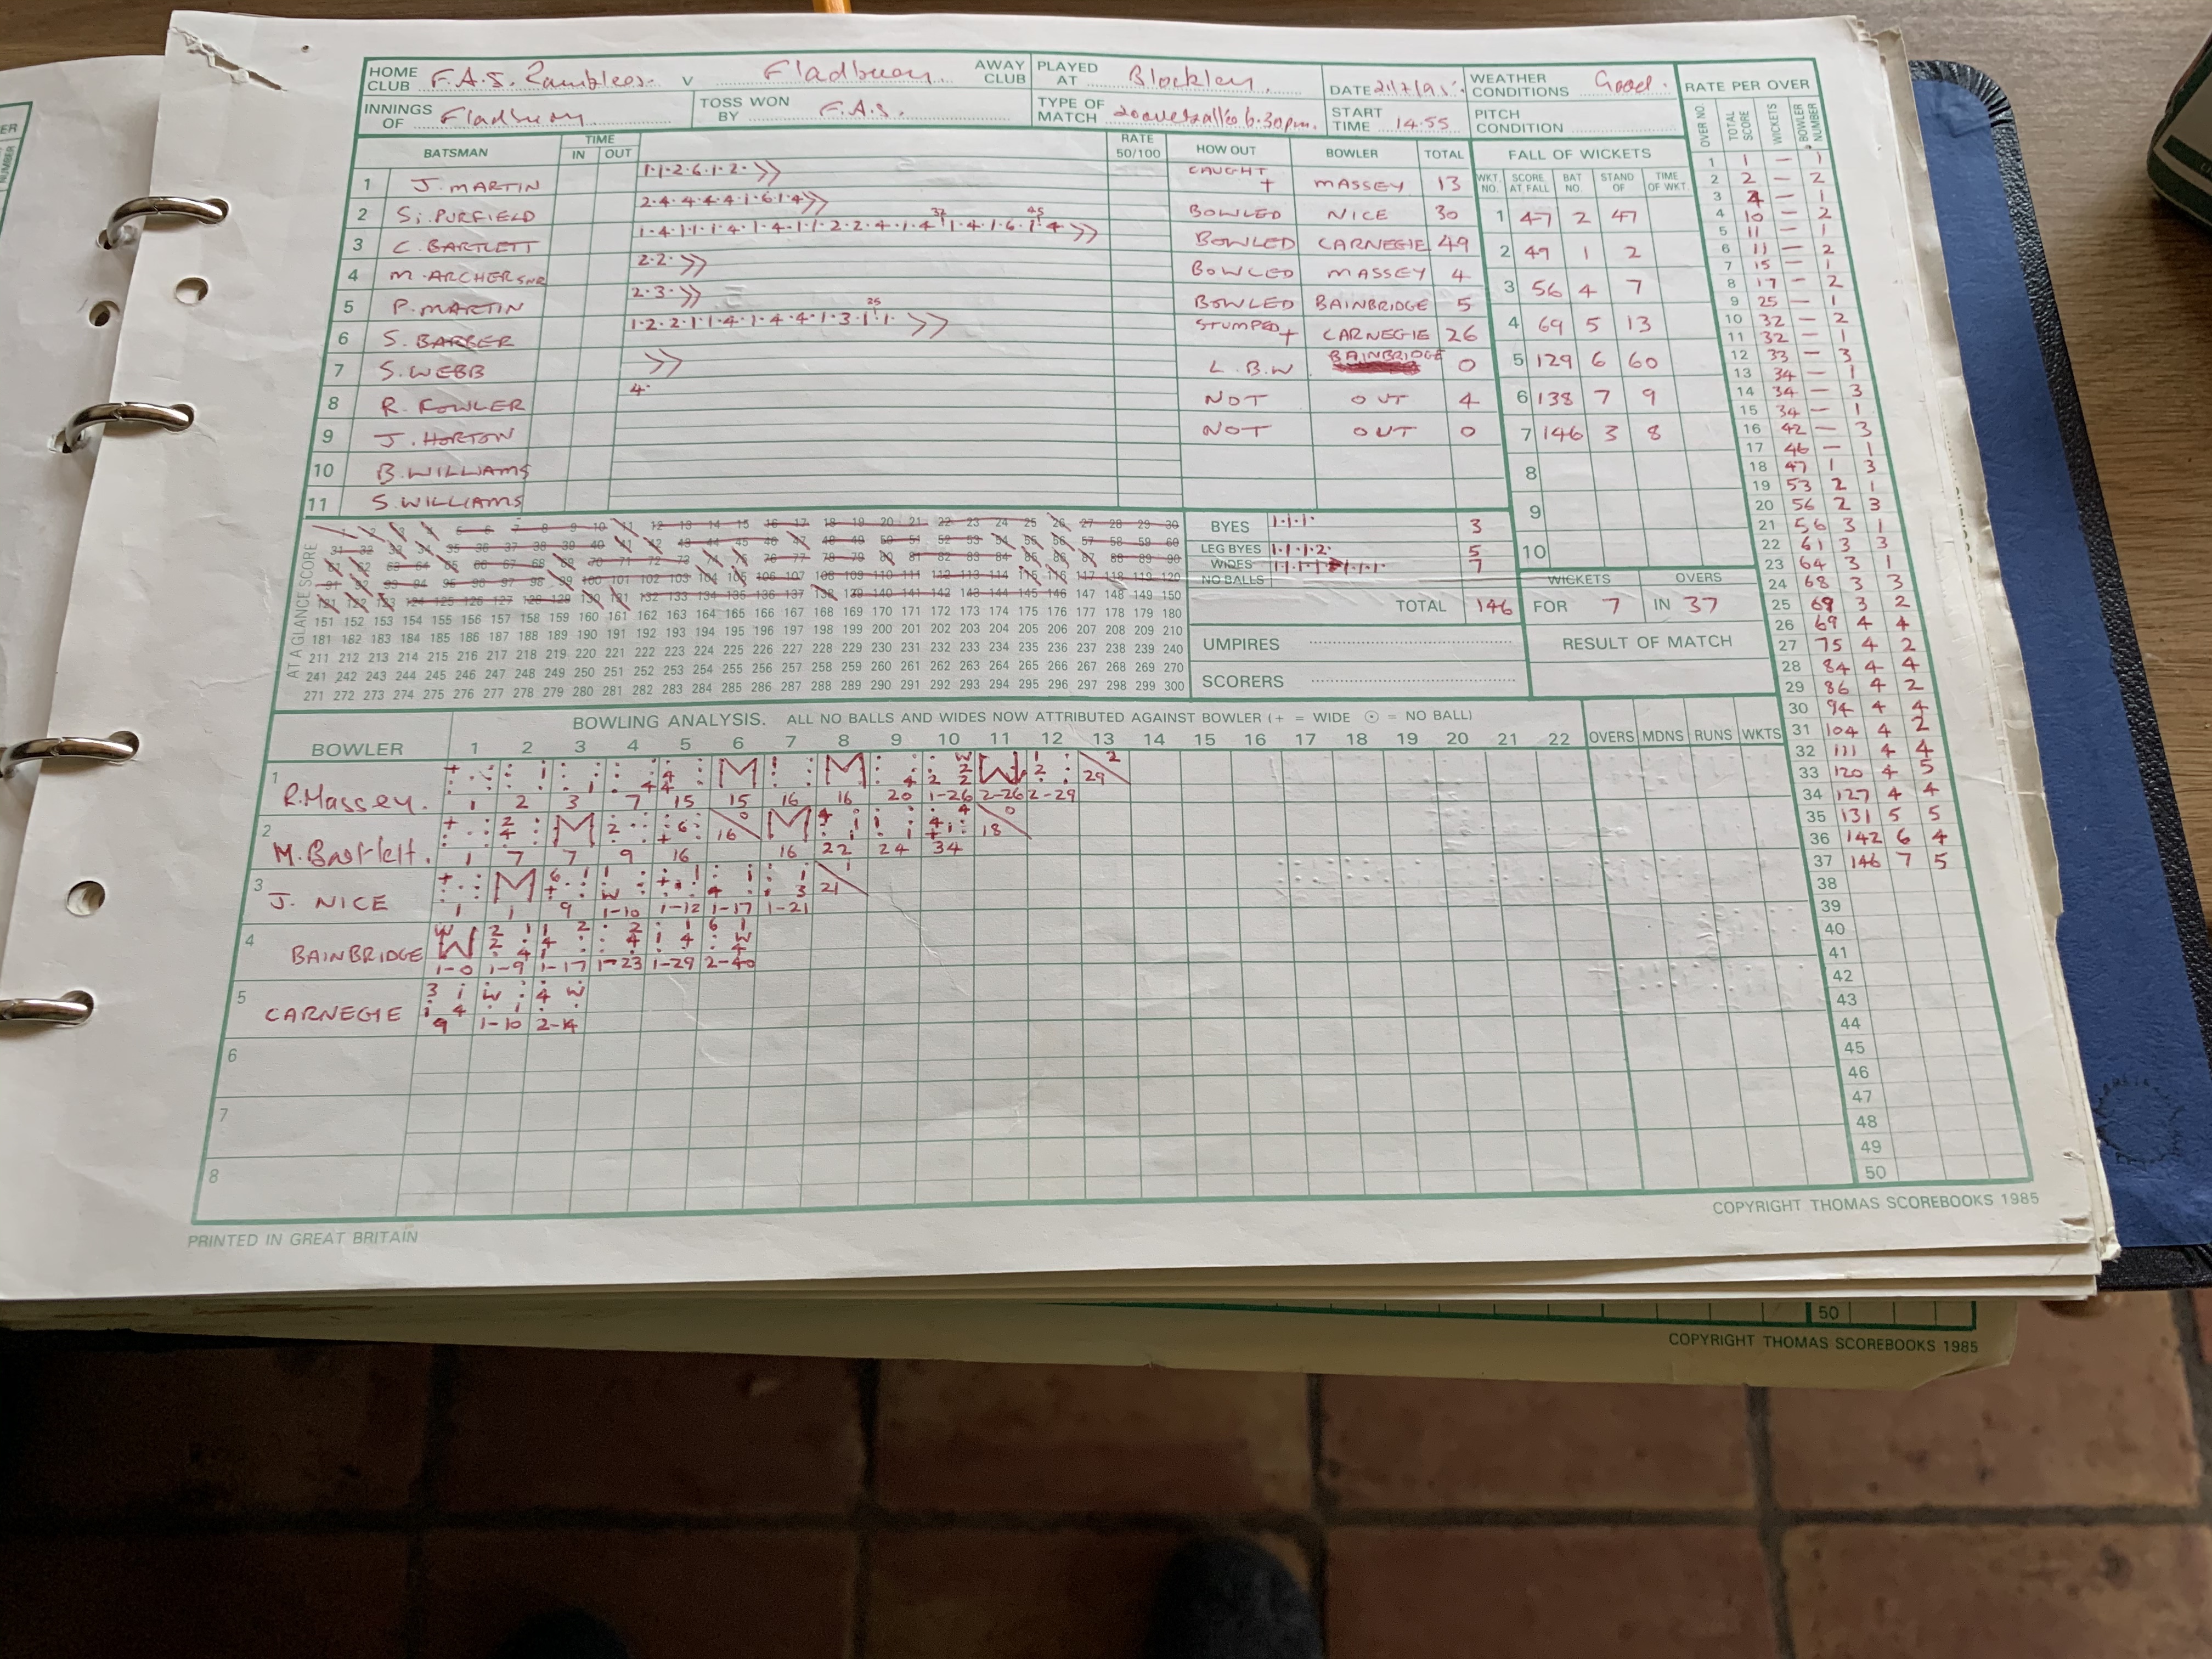 HOME CLUB F.A.S. Ramblers. V Fladbury AWAY CLUB PLAYED AT Blockley. DATE WEATHER CONDITIONS Good. RATE PER OVER
INNINGS OF Fladbury TOSS WON BY F.A.S. TYPE OF MATCH START TIME 14.55 PITCH CONDITION OVER NO. TOTAL SCORE WICKETS BOWLER NUMBER
BATSMAN TIME IN OUT RATE 50/100 HOW OUT BOWLER TOTAL FALL OF WICKETS
WKT. NO. SCORE AT FALL BAT NO. STAND OF TIME OF WKT.
1 J. MARTIN 1.1.2.6.1.2. CAUGHT + MASSEY 13
2 Si. PURFIELD 2.4.4.4.4.1.6.1.4 BOWLED NICE 30
3 C. BARTLETT BOWLED CARNEGIE 49
4 M. ARCHER SNR 2.2. BOWLED MASSEY 4
5 P. MARTIN 2.3. BOWLED BAINBRIDGE 5
6 S. BARBER 1.2.2.1.1.4.1.4.4.1.3.1.1. 25 STUMPED + CARNEGIE 26
7 S. WEBB L.B.W BAINBRIDGE 0
8 R. FOWLER 4. NOT OUT 4
9 J. HORTON NOT OUT 0
10 B. WILLIAMS
11 S. WILLIAMS
1 47 2 47
2 49 1 2
3 56 4 7
4 69 5 13
5 129 6 60
6 138 7 9
7 146 3 8
8
9
10
AT A GLANCE SCORE
1 2 3 4 5 6 7 8 9 10 11 12 13 14 15 16 17 18 19 20 21 22 23 24 25 26 27 28 29 30
31 32 33 34 35 36 37 38 39 40 41 42 43 44 45 46 47 48 49 50 51 52 53 54 55 56 57 58 59 60
61 62 63 64 65 66 67 68 69 70 71 72 73 74 75 76 77 78 79 80 81 82 83 84 85 86 87 88 89 90
91 92 93 94 95 96 97 98 99 100 101 102 103 104 105 106 107 108 109 110 111 112 113 114 115 116 117 118 119 120
121 122 123 124 125 126 127 128 129 130 131 132 133 134 135 136 137 138 139 140 141 142 143 144 145 146 147 148 149 150
151 152 153 154 155 156 157 158 159 160 161 162 163 164 165 166 167 168 169 170 171 172 173 174 175 176 177 178 179 180
181 182 183 184 185 186 187 188 189 190 191 192 193 194 195 196 197 198 199 200 201 202 203 204 205 206 207 208 209 210
211 212 213 214 215 216 217 218 219 220 221 222 223 224 225 226 227 228 229 230 231 232 233 234 235 236 237 238 239 240
241 242 243 244 245 246 247 248 249 250 251 252 253 254 255 256 257 258 259 260 261 262 263 264 265 266 267 268 269 270
271 272 273 274 275 276 277 278 279 280 281 282 283 284 285 286 287 288 289 290 291 292 293 294 295 296 297 298 299 300
BYES 1.1.1. 3
LEG BYES 1.1.1.2. 5
WIDES 7
NO BALLS
TOTAL 146
WICKETS OVERS
FOR 7 IN 37
UMPIRES
SCORERS
RESULT OF MATCH
1 1 — 1
2 2 — 2
3 4 — 1
4 10 — 2
5 11 — 1
6 11 — 2
7 15 — 1
8 17 — 2
9 25 — 1
10 32 — 2
11 32 — 1
12 33 — 3
13 34 — 1
14 34 — 3
15 34 — 1
16 42 — 3
17 46 — 1
18 47 1 3
19 53 2 1
20 56 2 3
21 56 3 1
22 61 3 3
23 64 3 1
24 68 3 3
25 69 3 2
26 69 4 4
27 75 4 2
28 84 4 4
29 86 4 2
30 94 4 4
31 104 4 2
32 111 4 4
33 120 4 5
34 127 4 4
35 131 5 5
36 142 6 4
37 146 7 5
38
39
40
41
42
43
44
45
46
47
48
49
50
BOWLING ANALYSIS. ALL NO BALLS AND WIDES NOW ATTRIBUTED AGAINST BOWLER (+ = WIDE ⊙ = NO BALL)
BOWLER 1 2 3 4 5 6 7 8 9 10 11 12 13 14 15 16 17 18 19 20 21 22 OVERS MDNS RUNS WKTS
1 R. Massey. 1 2 3 7 15 M 15 16 M 16 20 1-26 W 2-26 2-29 2 29
2 M. Bartlett. 1 7 M 7 9 16 0 16 M 16 22 24 34 0 18
3 J. NICE 1 M 1 9 1-10 1-12 1-17 1-21 1 21
4 BAINBRIDGE W 1-0 1-9 1-17 1-23 1-29 2-40
5 CARNEGIE 9 1-10 2-14
6
7
8
PRINTED IN GREAT BRITAIN
COPYRIGHT THOMAS SCOREBOOKS 1985
50
COPYRIGHT THOMAS SCOREBOOKS 1985